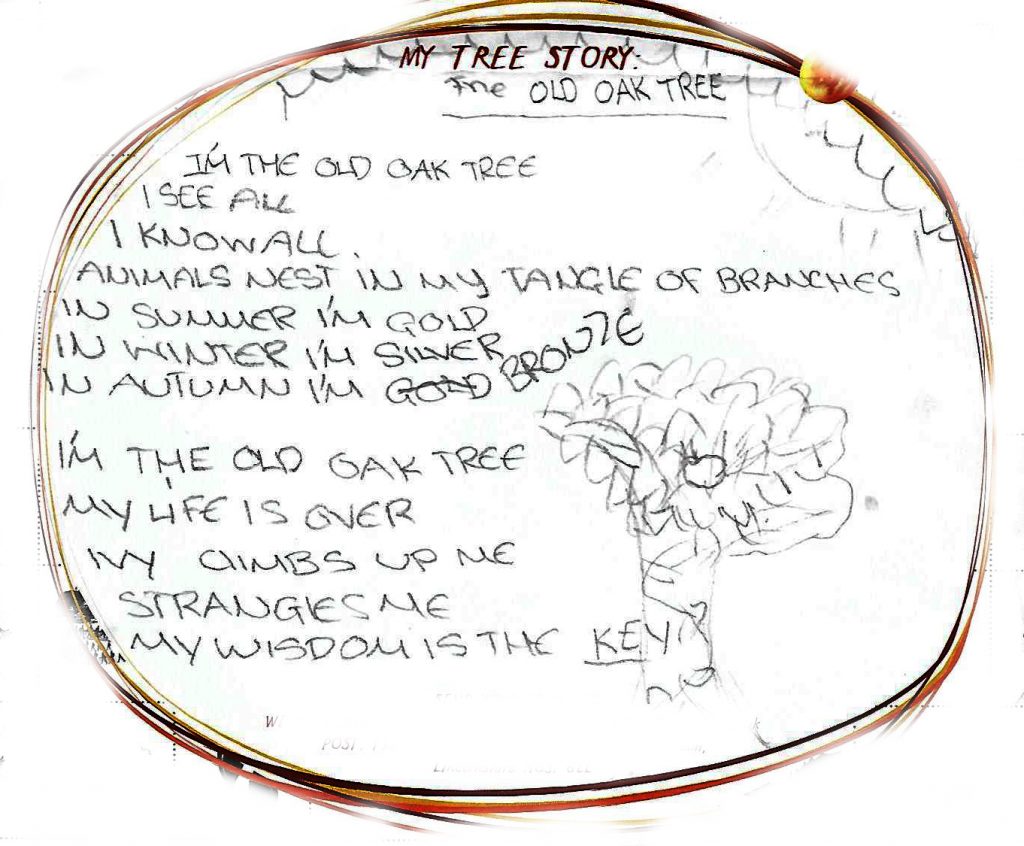 MY TREE STORY:
The OLD OAK TREE
I'M THE OLD OAK TREE
I SEE ALL
I KNOW ALL.
ANIMALS NEST IN MY TANGLE OF BRANCHES
IN SUMMER I'M GOLD
IN WINTER I'M SILVER
IN AUTUMN I'M GOLD BRONZE
I'M THE OLD OAK TREE
MY LIFE IS OVER
IVY CLIMBS UP ME
STRANGLES ME
MY WISDOM IS THE KEY